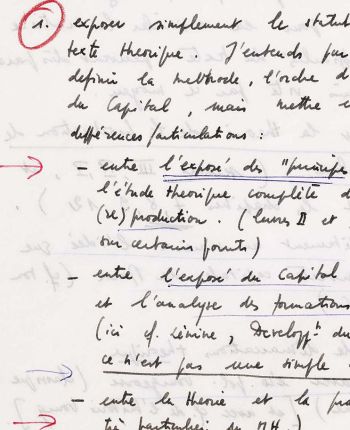 1. exposer simplement le statut
texte théorique. J'entends par
définir la méthode, l'ordre d
du Capital, mais mettre
différences / articulations :
– entre l'exposé des "principe
l'étude théorique complète d
(re)production. (livres II et
sur certains points)
– entre l'exposé du Capital
et l'analyse des formations
(ici cf. Lénine, Developpt du
ce n'est pas une simple
– entre la théorie et la pra
très particulier du MH.)